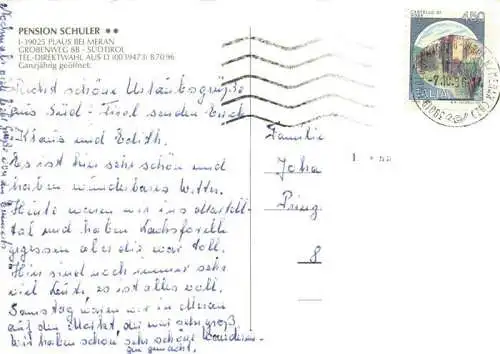 PENSION SCHULER ••
I-39025 PLAUS BEI MERAN
GRÖBENWEG 8B - SÜDTIROL
TEL-DIREKTWAHL AUS D (00 39473) 8 70 96
Ganzjährig geöffnet.
Recht schöne Urlaubsgrüße
aus Süd-Tirol senden Euch
Klaus und Edith.
Es ist hier sehr schön und
haben wunderbares Wetter.
Heute waren wir ins Martell-
tal und haben Lachsforelle
gegessen aber die war toll.
Hier sind noch immer sehr
viel Leute, es ist alles voll.
Samstag waren wir in Meran
auf den Markt, der war sehr groß
Wir haben schon sehr schöne Wanderun-
gen gemacht.
Familie
Joha
Prinz
8
CASTELLO DI
450
ITALIA